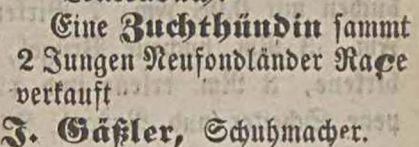 Eine Zuchthündin sammt
2 Jungen Neufondländer Raçe
verkauft
J. Gäßler, Schuhmacher.